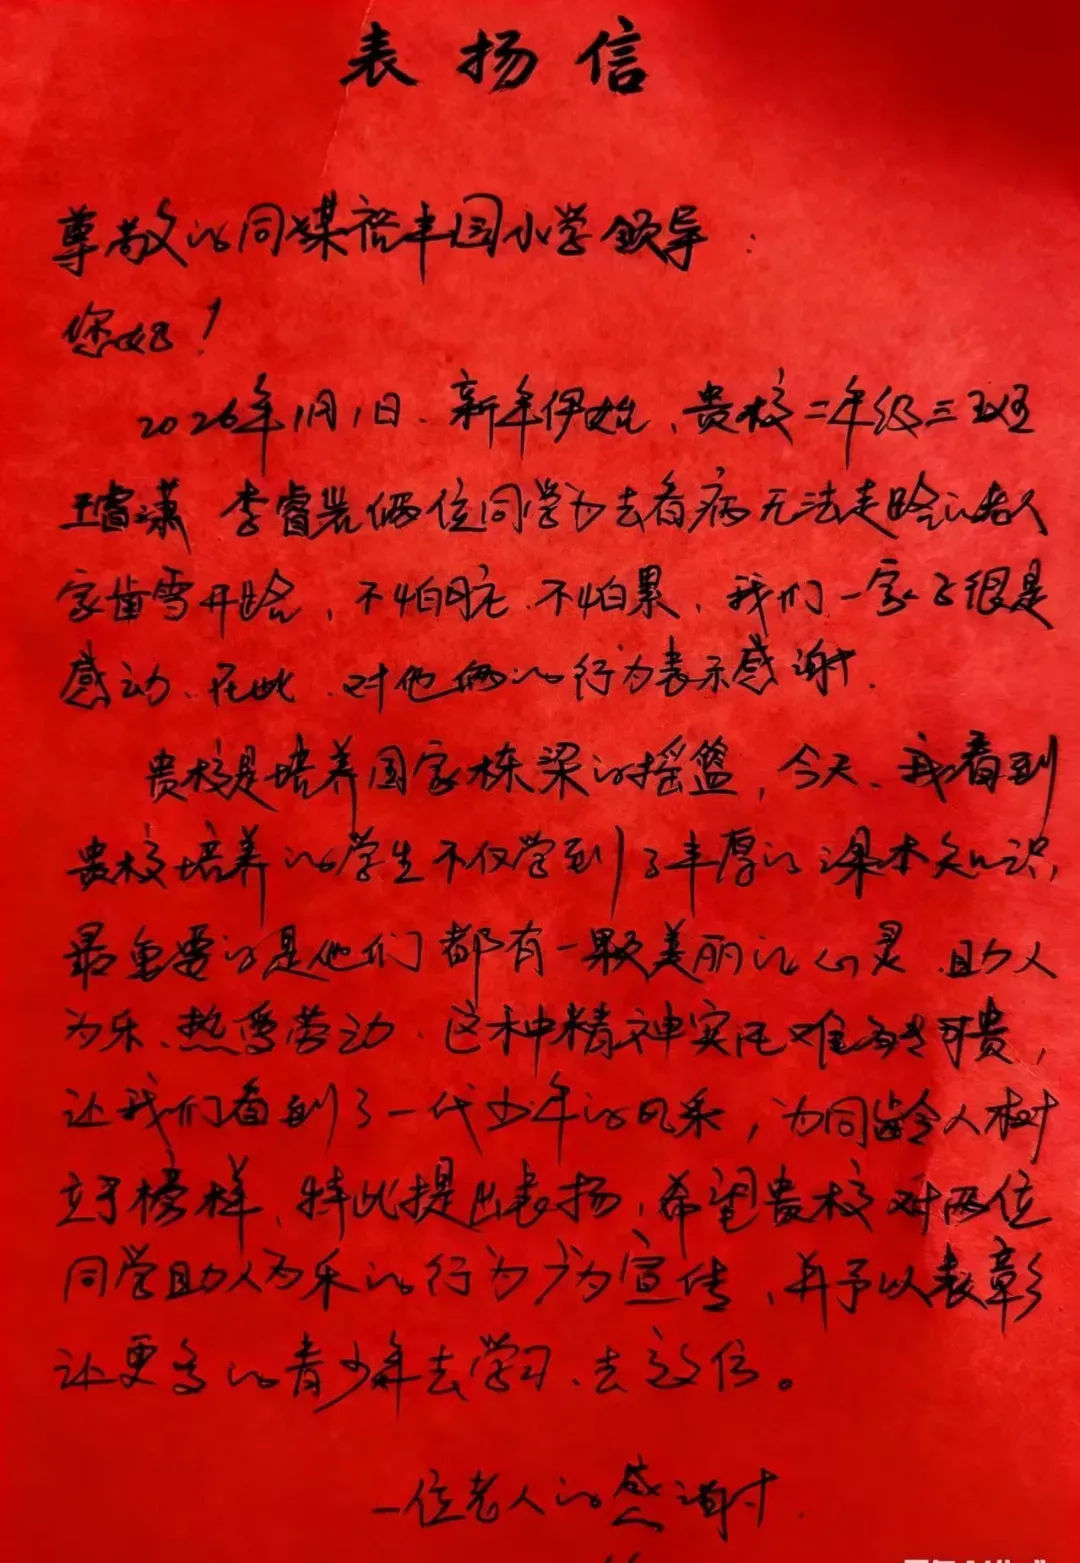 表扬信
尊敬的同煤裕丰园小学领导：
您好！
2026年1月1日、新年伊始，贵校二年级三班
王睿潇 李睿 俩位同学为去看病无法走路的老人
家 雪开路，不怕脏、不怕累，我们一家子很是
感动、在此、对他俩的行为表示感谢.
贵校是培养国家栋梁的摇篮，今天、我看到
贵校培养的学生不仅学到了丰厚的课本知识，
最重要的是他们都有一颗美丽的心灵、助人
为乐、热爱劳动、这种精神实 难能可贵，
让我们看到了一代少年的风采，为同龄人树
立了榜样、特此提出表扬，希望贵校对两位
同学助人为乐的行为广为宣传，并予以表彰
让更多的青少年去学习、去 。
一位老人的感谢.